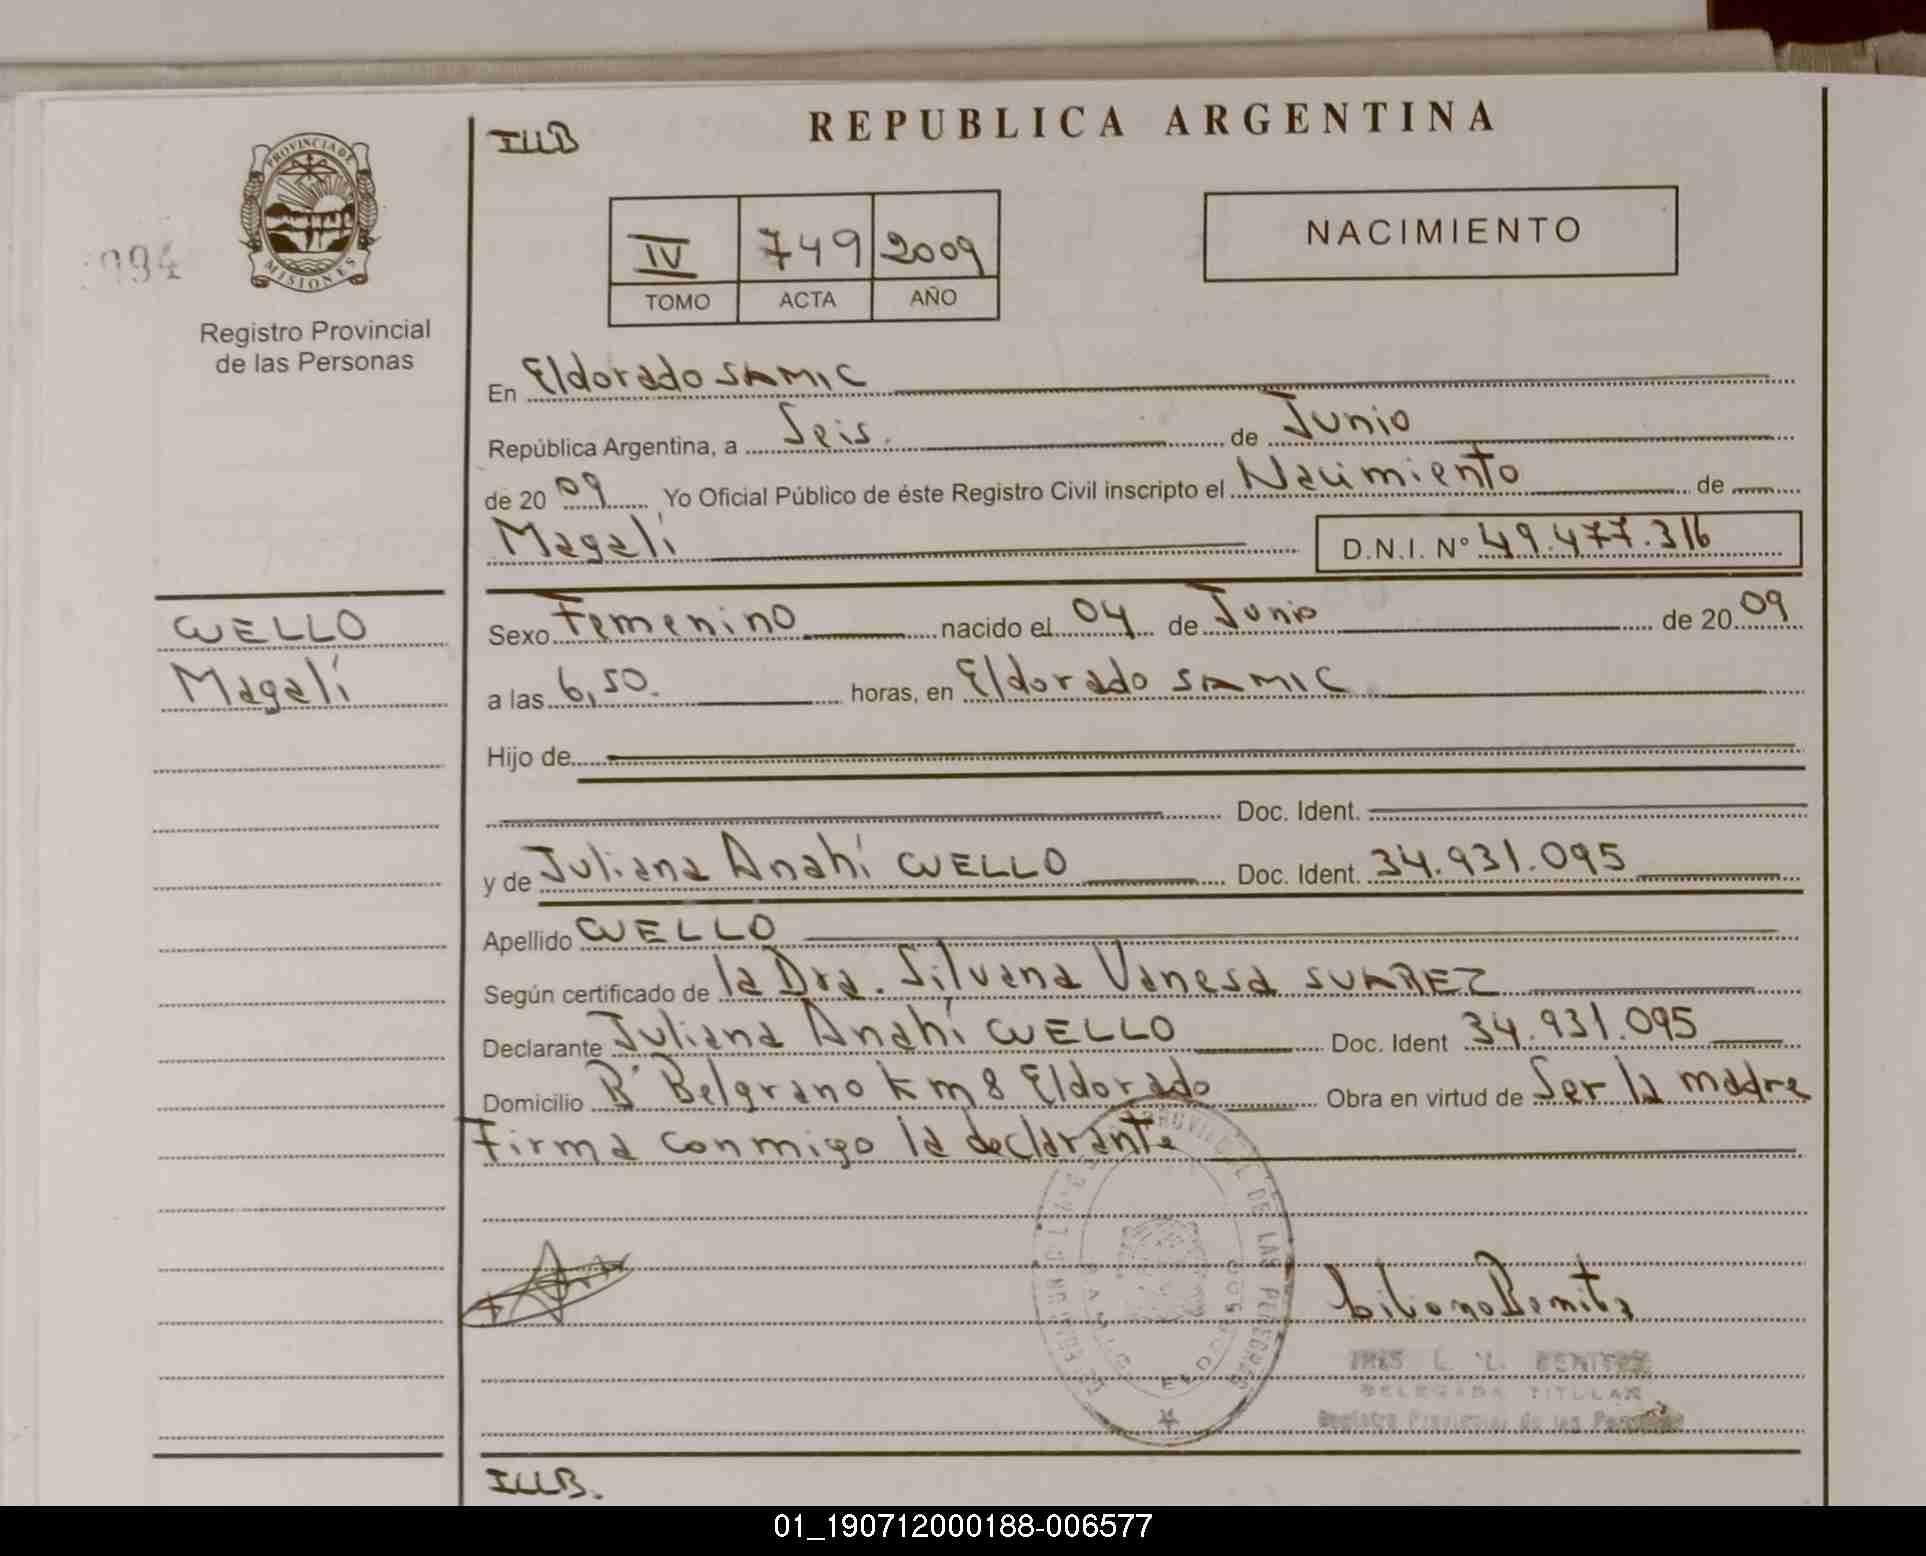 REPUBLICA ARGENTINA
ILLB
PROVINCIA DE MISIONES
IV 749 2009
TOMO ACTA AÑO
NACIMIENTO
Registro Provincial
de las Personas
En Eldorado SAMIC
República Argentina, a Seis. de Junio
de 2009 Yo Oficial Público de éste Registro Civil inscripto el Nacimiento de
Magalí D.N.I. Nº 49.477.316
CUELLO
Magalí
Sexo Femenino nacido el 04 de Junio de 2009
a las 6,50. horas, en Eldorado SAMIC
Hijo de
Doc. Ident.
y de Juliana Anahí CUELLO Doc. Ident. 34.931.095
Apellido CUELLO
Según certificado de la Dra. Silvana Vanesa SUAREZ
Declarante Juliana Anahí CUELLO Doc. Ident 34.931.095
Domicilio Bº Belgrano Km 8 Eldorado Obra en virtud de Ser la madre
Firma conmigo la declarante
PROVINCIAL DE LAS PERSONAS
ELDORADO
BENITEZ
DELEGADA TITULAR
Registro Provincial de las Personas
ILLB.
01_190712000188-006577